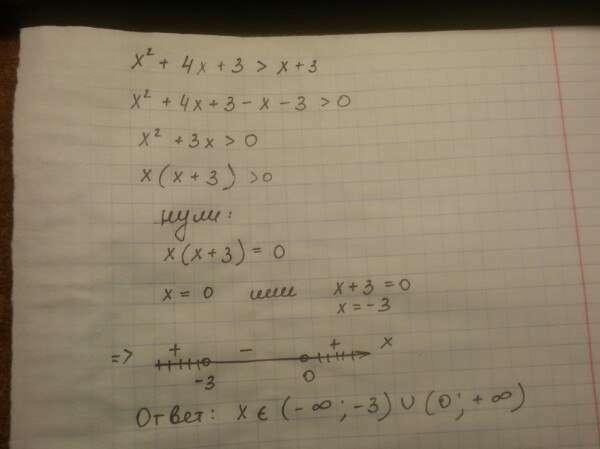 x² + 4x + 3 > x + 3
x² + 4x + 3 - x - 3 > 0
x² + 3x > 0
x(x + 3) > 0
нули:
x(x + 3) = 0
x = 0 или x + 3 = 0
x = -3
=> + - + x
-3 0
Ответ: x ∈ (-∞; -3) ∪ (0; +∞)